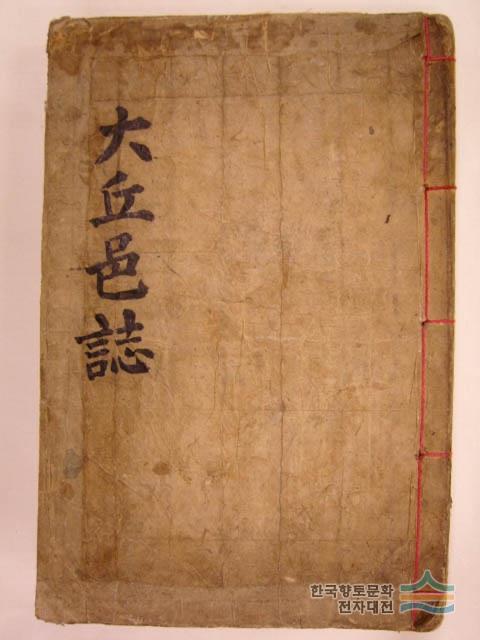 大丘邑誌
한국향토문화
전자대전